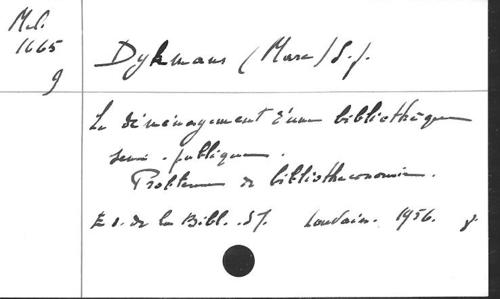 M.l.
1665
9
Dykmans (Marc) S.J.
Le déménagement d'une bibliothèque
semi-publique.
Problème de bibliothéconomie.
Ed. de la Bibl. S.J. Louvain. 1956. 8.